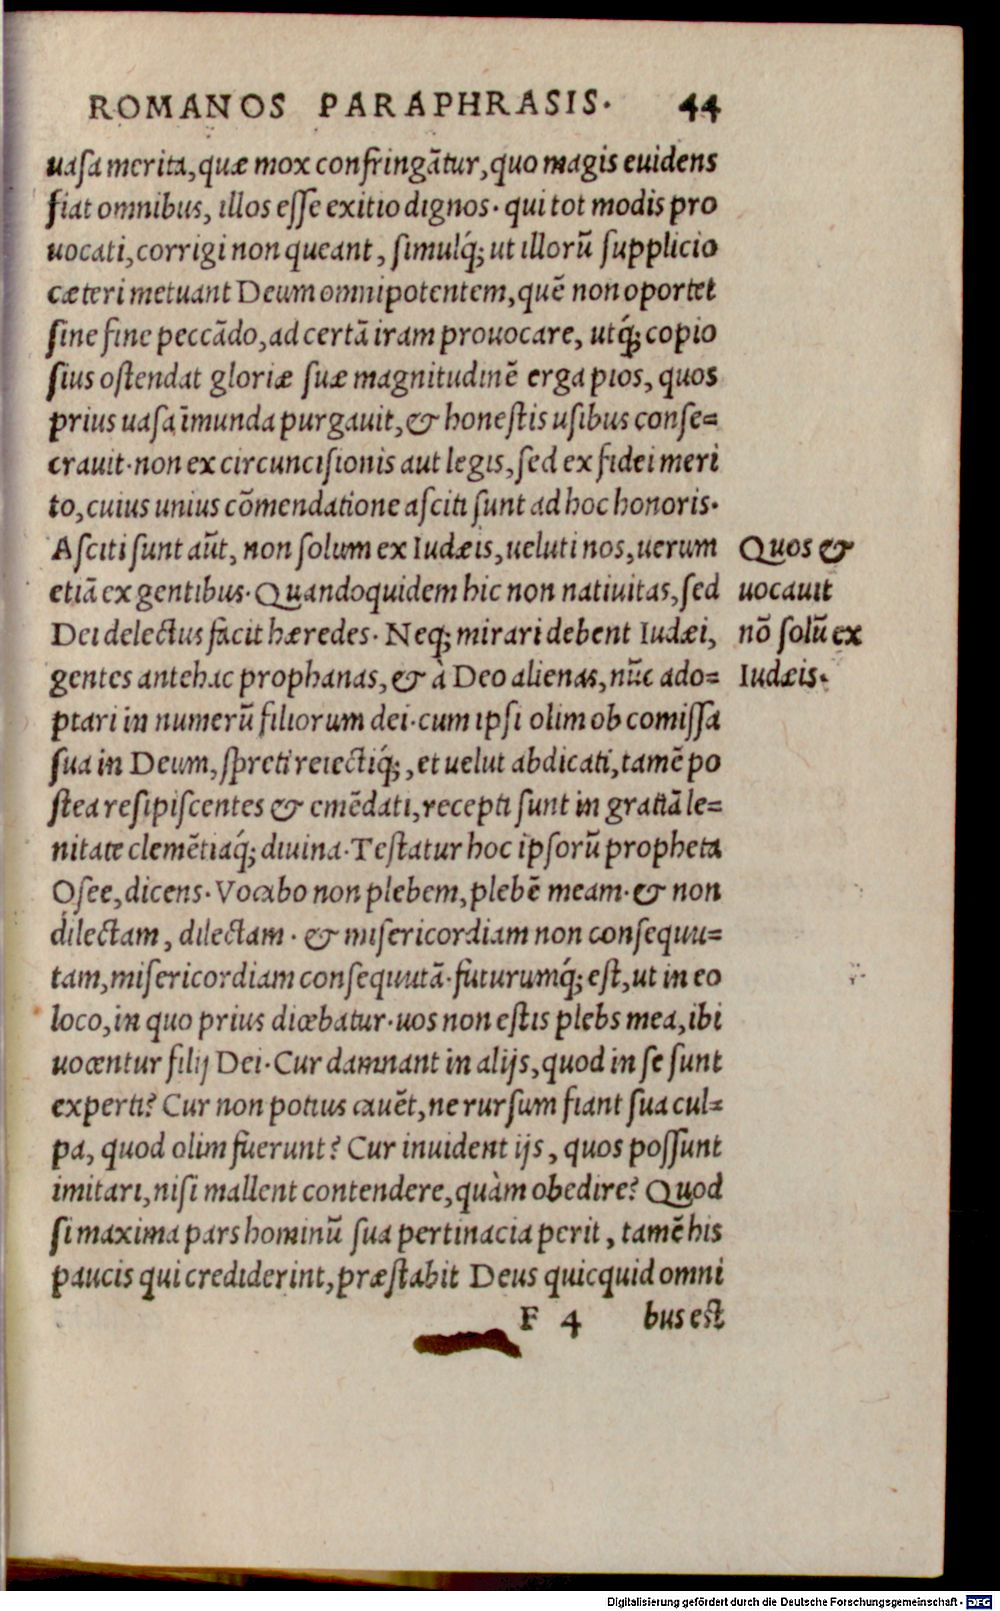 ROMANOS PARAPHRASIS. 44
uasa merita, quæ mox confringātur, quo magis euidens
fiat omnibus, illos esse exitio dignos. qui tot modis pro
uocati, corrigi non queant, simulq́; ut illorū supplicio
cæteri metuant Deum omnipotentem, quē non oportet
sine fine peccādo, ad certā iram prouocare, utq́; copio
sius ostendat gloriæ suæ magnitudinē erga pios, quos
prius uasa īmunda purgauit, & honestis usibus conse=
crauit. non ex circuncisionis aut legis, sed ex fidei meri
to, cuius unius cōmendatione asciti sunt ad hoc honoris.
Asciti sunt aūt, non solum ex Iudæis, ueluti nos, uerum
etiā ex gentibus. Quandoquidem hic non natiuitas, sed
Dei delectus facit hæredes. Neq; mirari debent Iudæi,
gentes antehac prophanas, & à Deo alienas, nūc ado=
ptari in numerū filiorum dei. cum ipsi olim ob comissa
sua in Deum, spreti reiectiq́;, et uelut abdicati, tamē po
stea resipiscentes & emēdati, recepti sunt in gratiā le=
nitate clemētiaq́; diuina. Testatur hoc ipsorū propheta
Osee, dicens. Vocabo non plebem, plebē meam. & non
dilectam, dilectam. & misericordiam non consequu=
tam, misericordiam consequutā. futurumq́; est, ut in eo
loco, in quo prius dicebatur. uos non estis plebs mea, ibi
uocentur filij Dei. Cur damnant in alijs, quod in se sunt
experti? Cur non potius cauēt, ne rursum fiant sua cul=
pa, quod olim fuerunt? Cur inuident ijs, quos possunt
imitari, nisi mallent contendere, quàm obedire? Quod
si maxima pars hominū sua pertinacia perit, tamē his
paucis qui crediderint, præstabit Deus quicquid omni
F 4 bus est
Quos &
uocauit
nō solū ex
Iudæis.
Digitalisierung gefördert durch die Deutsche Forschungsgemeinschaft - DFG